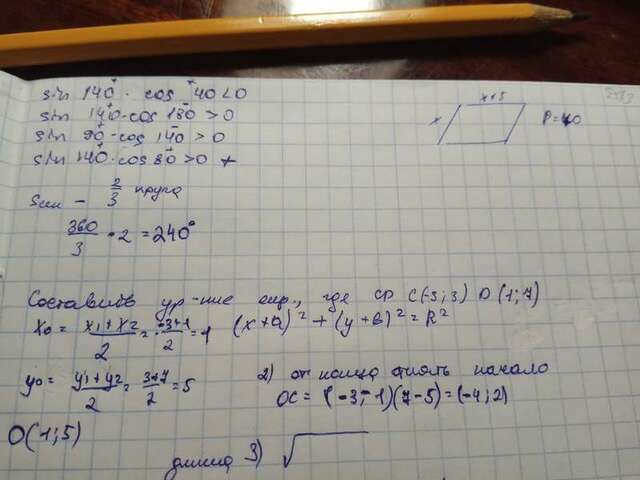 sin 140 · cos 40 < 0
sin 140 · cos 130 > 0
sin 90 · cos 140 > 0
sin 140 · cos 80 > 0 +
x+5
x
P=40
Sсек - 2/3 круга
360/3 · 2 = 240°
Составить ур-ние окр., где CD C(-3;3) D(1;7)
x₀ = (x₁+x₂)/2 = (-3+1)/2 = 1 (x+a)² + (y+b)² = R²
y₀ = (y₁+y₂)/2 = (3+7)/2 = 5
2) от конца отнять начало
OC = (-3-1)(7-5) = (-4;2)
O(1;5)
длина 3) √